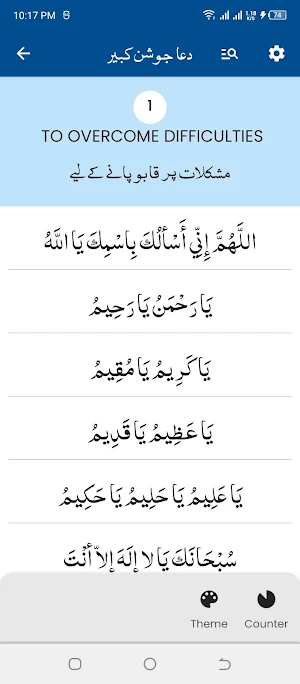 10:17 PM 1.18 K/s 74
دعا جوشن کبیر
1
TO OVERCOME DIFFICULTIES
مشکلات پر قابو پانے کے لیے
اللَّهُمَّ إِنِّي أَسْأَلُكَ بِاسْمِكَ يَا اللَّهُ
يَا رَحْمَنُ يَا رَحِيمُ
يَا كَرِيمُ يَا مُقِيمُ
يَا عَظِيمُ يَا قَدِيمُ
يَا عَلِيمُ يَا حَلِيمُ يَا حَكِيمُ
سُبْحَانَكَ يَا لا إِلَهَ إِلاّ أَنْتَ
Theme Counter